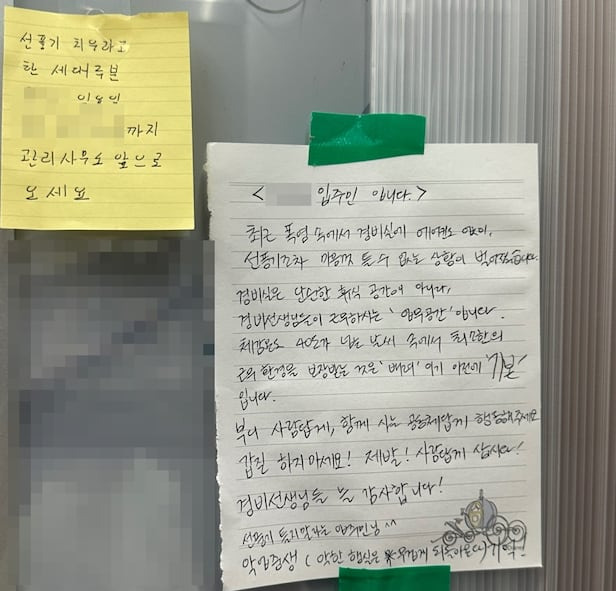 선풍기 치우라고
한 세대주분
까지
관리사무소 앞으로
오세요
< 입주민 입니다.>
최근 폭염 속에서 경비실에 에어컨도 없이,
선풍기조차 마음껏 틀 수 없는 상황이 벌어졌습니다.
경비실은 단순한 휴식 공간이 아니라,
경비선생님들이 근무하시는 '업무공간' 입니다.
체감온도 40도가 넘는 날씨 속에서 최소한의
근무환경을 보장받는 것은 '배려' 이기 이전에 '기본'
입니다.
부디 사람답게, 함께 사는 공동체답게 행동해주세요
갑질 하지마세요! 제발! 사람답게 삽시다!
경비선생님들 늘 감사합니다!
선풍기 틀지말라는 입주민님 ^^
악업준생 ( 악한 행실은 무겁게 되돌아온다) 기억